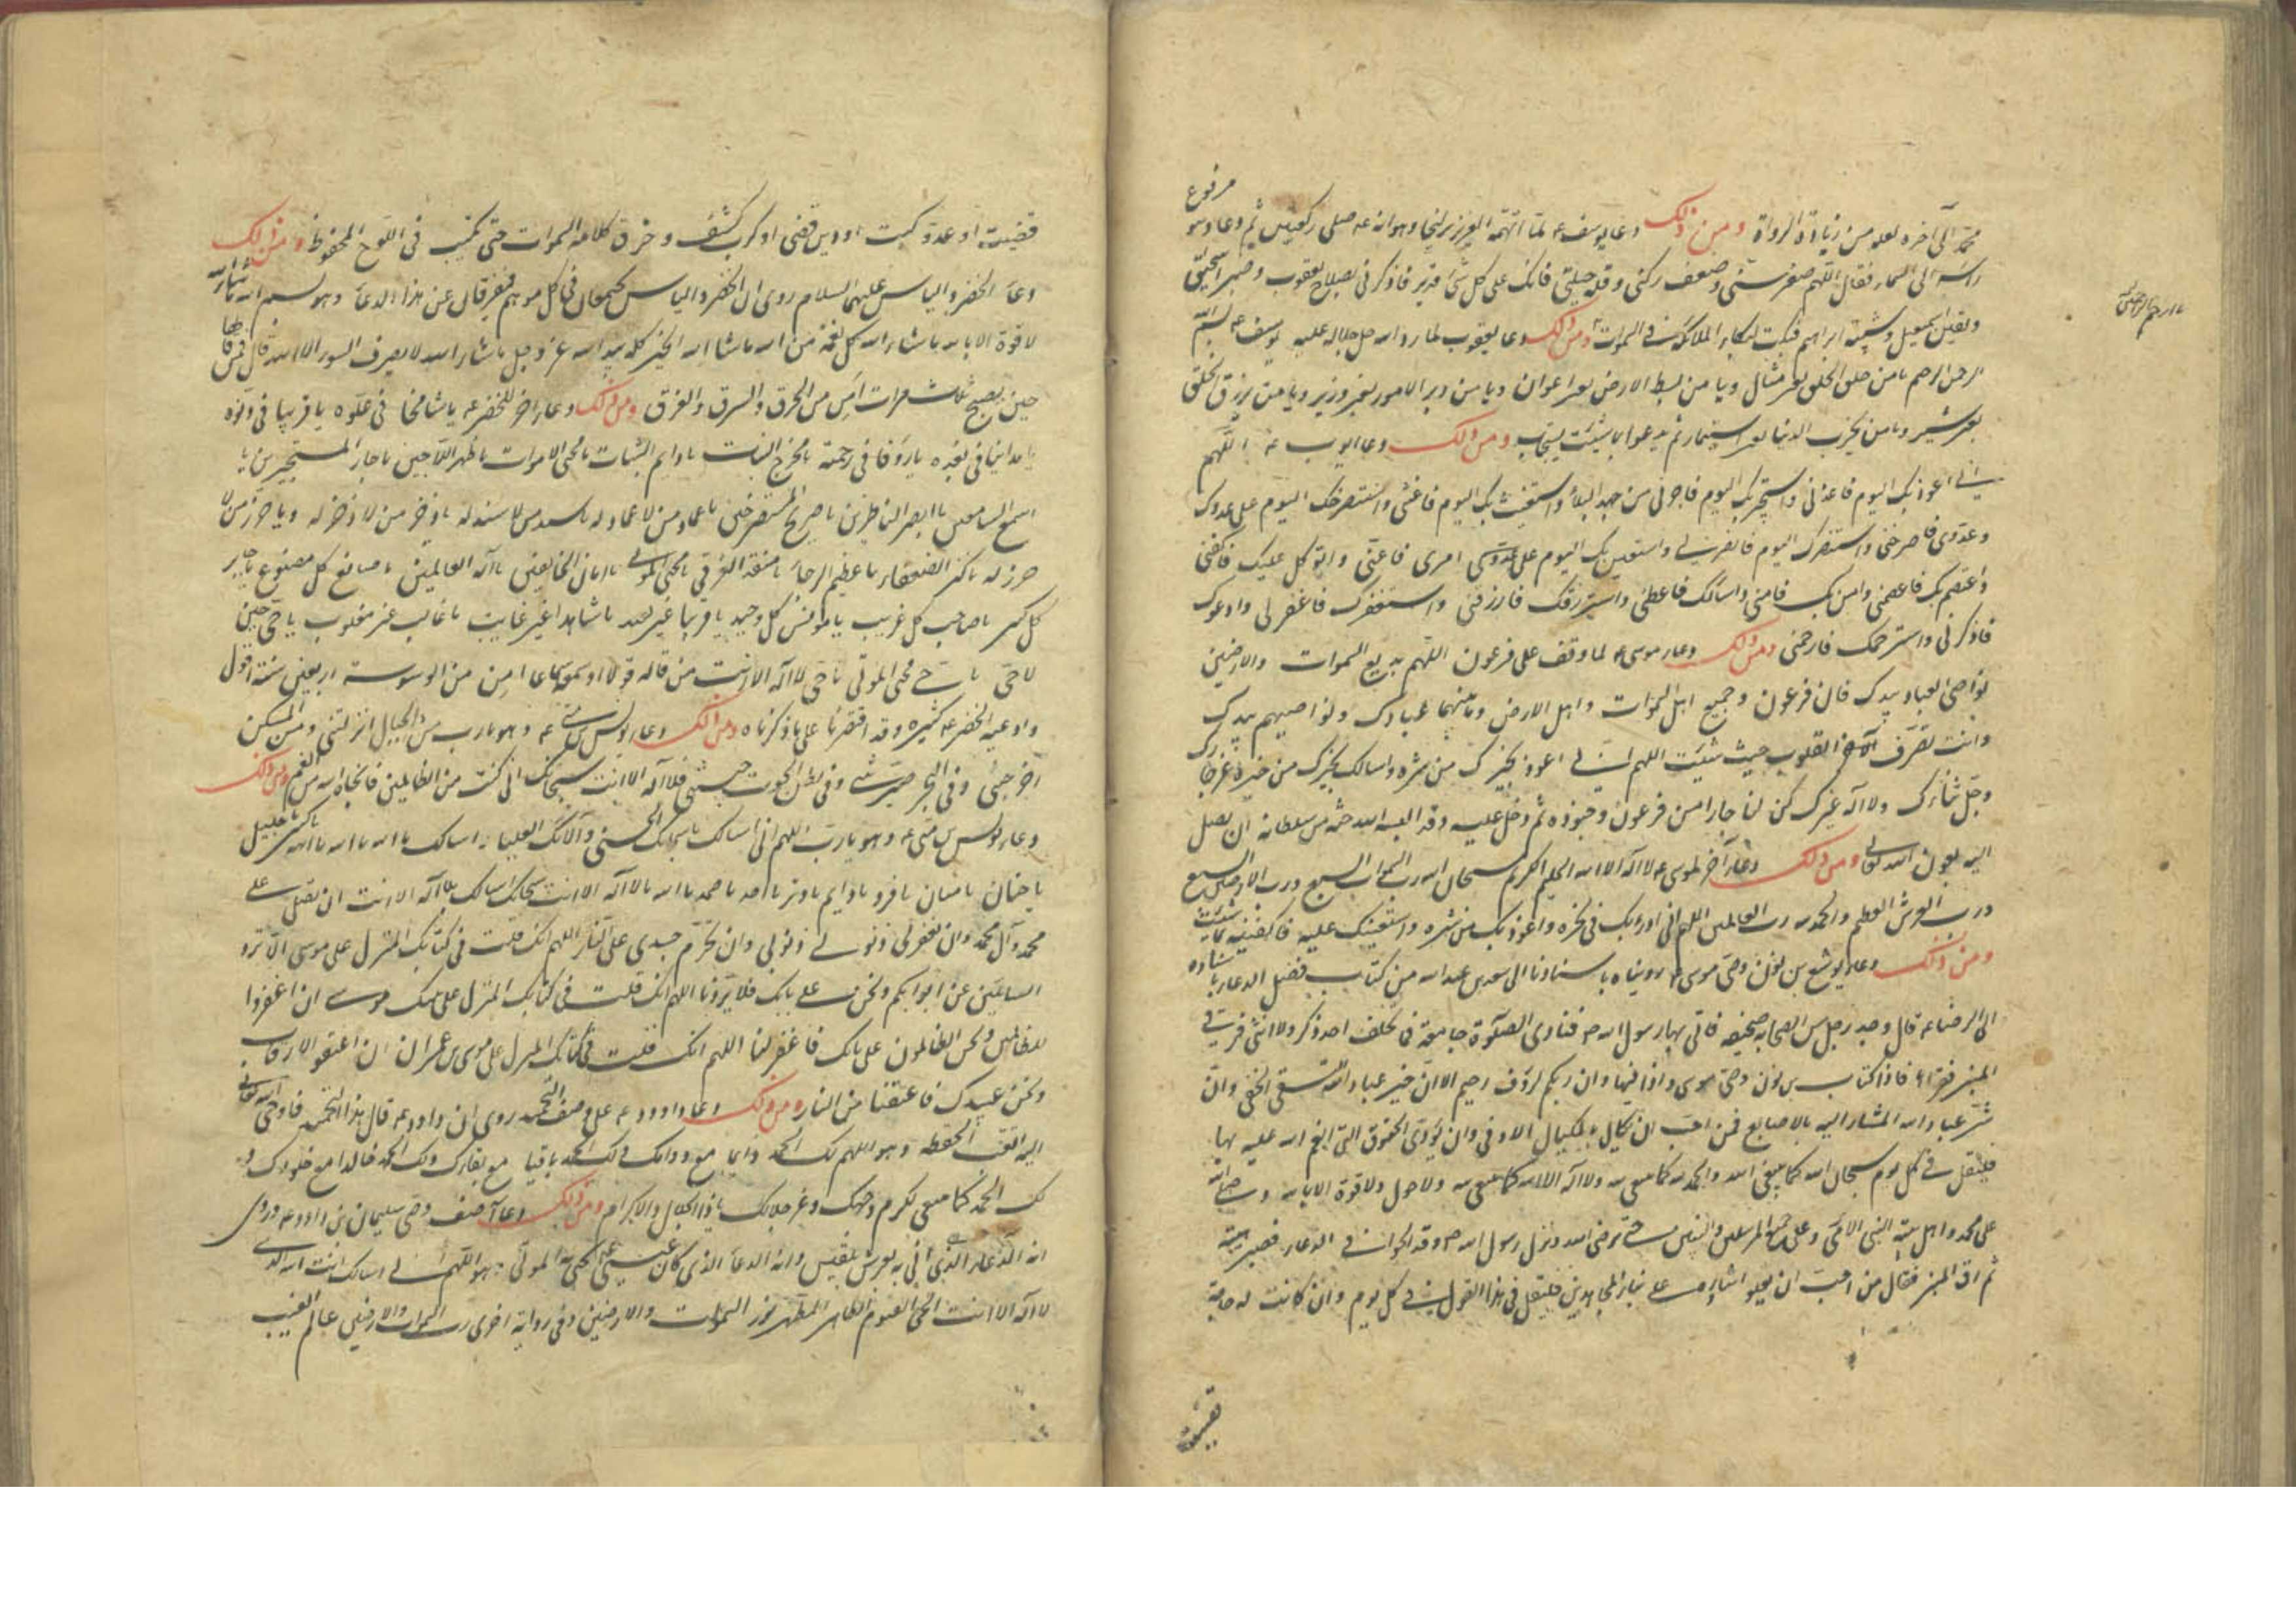 محمد الى آخره لعله من زيادة الرواة ومن ذلك دعا يوسف ع لما اتهمه العزيز بزليخا وهو انه ع صلى ركعتين ثم دعا ومو مرفوع
راسه الى السماء فقال اللهم صغر سنى وضعف ركنى وقلة حيلتى فانك على كل شئ قدير فاذكرنى بصلاح يعقوب وصبر اسحق
ويقين اسمعيل وشيبة ابراهيم فبكت لبكاء الملائكة فى السموات ومن ذلك دعا يعقوب لما رد الله جل جلاله عليه يوسف ع بسم الله
الرحمن الرحيم يا من خلق الخلق بغير مثال ويا من بسط الارض بغير اعوان ويا من دبر الامور بغير وزير ويا من يرزق الخلق
بغير مشير ويا من يخرب الدنيا بغير استيمار ثم تدعوا بما شئت يستجاب ومن ذلك دعا ايوب ع اللهم
انى اعوذ بك اليوم فاعذنى واستجير بك اليوم فاجرنى من جهد البلاء واستغيث بك اليوم فاغثنى واستصرخك اليوم على عدوك
وعدوى فاصرخنى واستنصرك اليوم فانصرنى واستعين بك اليوم على امرى فاعنى واتوكل عليك فاكفنى
واعتصم بك فاعصمنى وامن بك فامنى واسالك فاعطنى واسترزقك فارزقنى واستغفرك فاغفر لى وادعوك
فاذكرنى واسترحمك فارحمنى ومن ذلك دعاء موسى ع لما وقف على فرعون اللهم بديع السموات والارضين
نواصى العباد بيدك فان فرعون وجميع اهل السموات واهل الارض وما بينهما عبادك ونواصيهم بيدك
وانت تصرف القلوب حيث شئت اللهم انى اعوذ بخيرك من شره واسالك بخيرك من خيره عز جارك
وجل ثناؤك ولا اله غيرك كن لنا جارا من فرعون وجنوده ثم دخل عليه وقد البسه الله جنة من سلطانه ان يصل
اليه بعون الله تعالى ومن ذلك دعاء آخر لموسى ع لا اله الا الله الحليم الكريم سبحان الله رب السموات السبع ورب الارضين السبع
ورب العرش العظيم والحمد لله رب العالمين اللهم انى ادرا بك فى نحره واعوذ بك من شره واستعينك عليه فاكفنيه بما شئت
ومن ذلك دعاء يوشع بن نون وصى موسى ع رويناه باسنادنا الى سعد بن عبد الله من كتاب فضل الدعاء باسناده
الى الرضا ع قال وجد رجل من الصحابه صحيفه فاتى بها رسول الله ص فنادى الصلوة جامعة فما تخلف احد ذكر ولا انثى فرقى
المنبر فقراها فاذا كتاب بن نون وصى موسى واذا فيها وان ربكم لرؤف رحيم الا ان خير عباد الله التقى الخفى وان
شر عباد الله المشار اليه بالاصابع فمن احب ان يكتال بالمكيال الاوفى وان يؤدى الحقوق التى انعم الله عليه بها
فليقل فى كل يوم سبحان الله كما ينبغى لله والحمد لله كما ينبغى لله ولا اله الا الله كما ينبغى لله ولا حول ولا قوة الا بالله وصلى الله
على محمد واهل بيته النبى الامى وعلى جميع المرسلين والنبيين حتى يرضى الله ونزل رسول الله ص وقد الحوا فى الدعاء فصبر هنيئة
ثم رقى المنبر فقال من احب ان يعلو ثناؤه على ثناء المجاهدين فليقل هذا القول فى كل يوم وان كانت له حاجة
قضيت او عدو كبت او دين قضى او كرب كشف وخرق كلامه السموات حتى يكتب فى اللوح المحفوظ ومن ذلك
دعا الخضر والياس عليهما السلام روى ان الخضر والياس يجتمعان فى كل موسم فيفترقان عن هذا الدعا وهو بسم الله ما شاء الله
لا قوة الا بالله ما شاء الله كل نعمة من الله ما شا الله الخير كله بيد الله عز وجل ما شاء الله لا يصرف السوء الا الله قال فمن قالها
حين يصبح ثلث مرات امن من الحرق والسرق والغرق ومن ذلك دعاء اخر للخضر ع يا شامخا فى علوه يا قريبا فى دنوه
يا مدانيا فى بعده يا رؤفا فى رحمته يا مخرج النبات يا دايم الثبات يا محيى الاموات يا ظهر اللاجين يا جار المستجيرين يا
اسمع السامعين يا ابصر الناظرين يا صريخ المستصرخين يا عماد من لا عماد له يا سند من لا سند له يا ذخر من لا ذخر له ويا حرز من لا
حرز له يا كنز الضعفاء يا عظيم الرجاء يا منقذ الغرقى يا محيى الموتى يا امان الخائفين يا اله العالمين يا صانع كل مصنوع يا جابر
كل كسير يا صاحب كل غريب يا مونس كل وحيد يا قريبا غير بعيد يا شاهدا غير غايب يا غالب غير مغلوب يا حى حين
لا حى يا حى محيى الموتى يا حى لا اله الا انت من قاله قولا او سمعه سماعا امن من الوسوسة اربعين سنة اقول
وادعيه الخضر ع كثيره وقد اقتصرنا على ما ذكرناه ومن ذلك دعاء يونس بن متى ع وهو يا رب من الجبال انزلتنى ومن المسكن
اخرجتنى وفى البحر صيرتنى وفى بطن الحوت حبستنى فلا اله الا انت سبحانك انى كنت من الظالمين فانجاه الله من الغم ومن ذلك
دعاء يونس بن متى ع وهو يا رب اللهم انى اسالك باسمائك الحسنى وآلائك العليا اسالك يا الله يا الله يا الله يا كبير يا جليل
يا حنان يا منان يا فرد يا دايم يا وتر يا احد يا صمد يا الله يا لا اله الا انت سبحانك اسالك بلا اله الا انت ان تصلى على
محمد وآل محمد وان تغفر لى ذنوبى وان تحرم جسدى على النار اللهم انك قلت فى كتابك المنزل على موسى الا تردو
السائلين عن ابوابكم ونحن على بابك فلا تردنا اللهم انك قلت فى كتابك المنزل على نبيك موسى ان اغفروا
للظالمين ونحن الظالمون على بابك فاغفر لنا اللهم انك قلت فى كتابك المنزل على موسى بن عمران ان اعتقوا الارقاب
ونحن عبيدك فاعتقنا من النار ومن ذلك دعا داوود ع على وصف التحميد روى ان داود ع قال هذا التحميد فاوحى الله تعالى
اليه اتعبت الحفظه وهو اللهم لك الحمد دائما مع دوامك ولك الحمد باقيا مع بقاءك ولك الحمد خالدا مع خلودك و
لك الحمد كما ينبغى لكرم وجهك وعز جلالك يا ذا الجلال والاكرام ومن ذلك دعا آصف وصى سليمان بن داوود ع وروى
انه الدعاء الذى اتى به بعرش بلقيس وانه الدعا الذى كان عيسى ع يحيى به الموتى وهو اللهم انى اسالك انت الله الذى
لا اله الا انت الحى القيوم الطاهر المطهر نور السموات والارضين وفى رواية اخرى رب السموات والارضين عالم الغيب